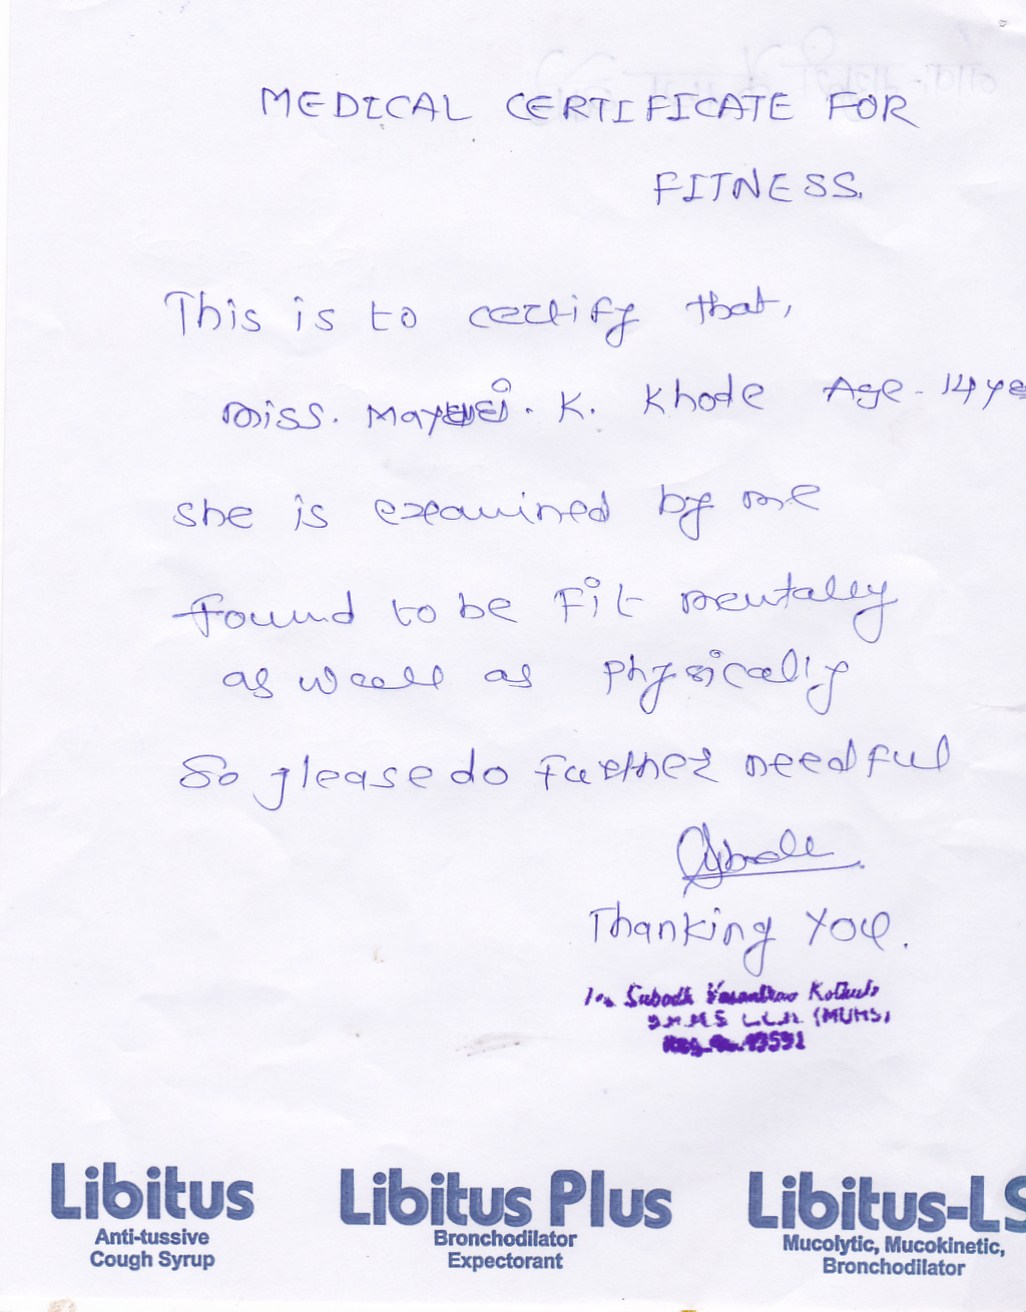 MEDICAL CERTIFICATE FOR
FITNESS.
This is to certify that,
miss. K. Khode Age - 14 ye
she is examined by me
found to be Fit mentally
as weell as physically
So please do further needful
Thanking You.
Subodh Vasantrao
(MUHS)
13591
Libitus
Anti-tussive
Cough Syrup
Libitus Plus
Bronchodilator
Expectorant
Libitus-LS
Mucolytic, Mucokinetic,
Bronchodilator